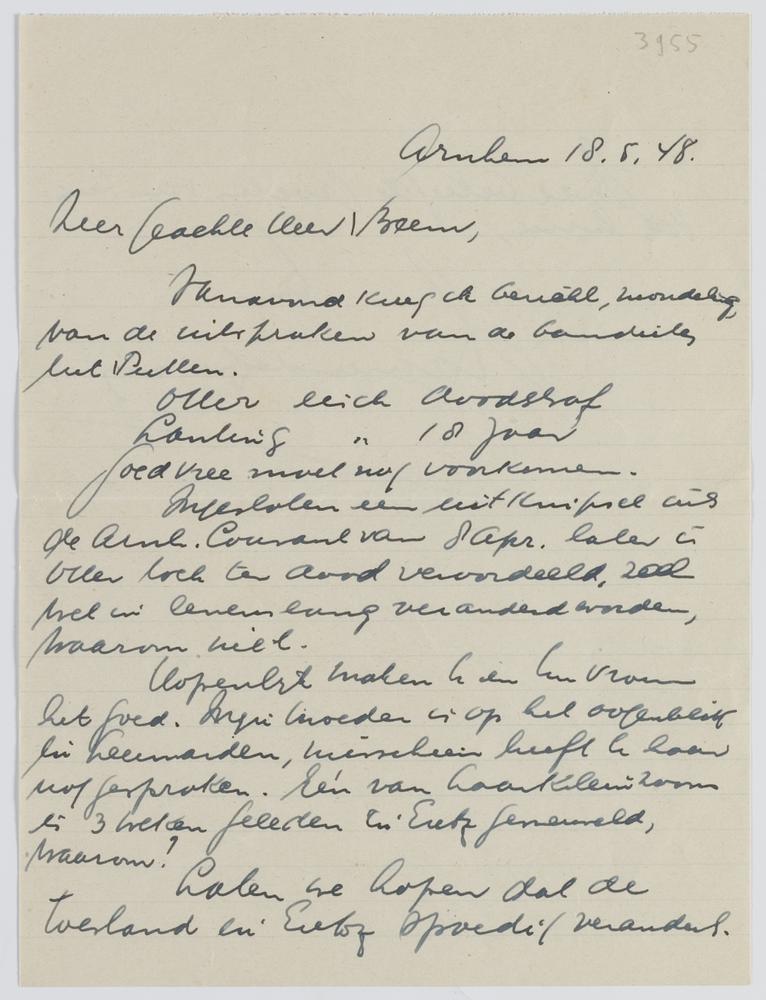 3955
Arnhem 18.5.48.
Zeer Geachte Heer Broem,
Vanavond kreeg ik bericht, mondeling
van de uitspraken van de bandieten
uit Putten.
Otter eisch doodstraf
" 18 jaar
Goedvree moet nog voorkomen.
Ingesloten een uitknipsel uit
de Arnh. Courant van 8 Apr. later is
Otter toch ter dood veroordeeld, zal
wel in levenslang veranderd worden,
waarom niet.
Hopenlijk maken U en Uw vrouw
het goed. Mijn moeder is op het oogenblik
in Leeuwarden, misschien heeft U haar
nog gesproken. Eén van haar kleinzoons
is 3 weken geleden in Eretz gesneuveld,
waarom?
Laten we hopen dat de
toestand in Eretz spoedig verandert.